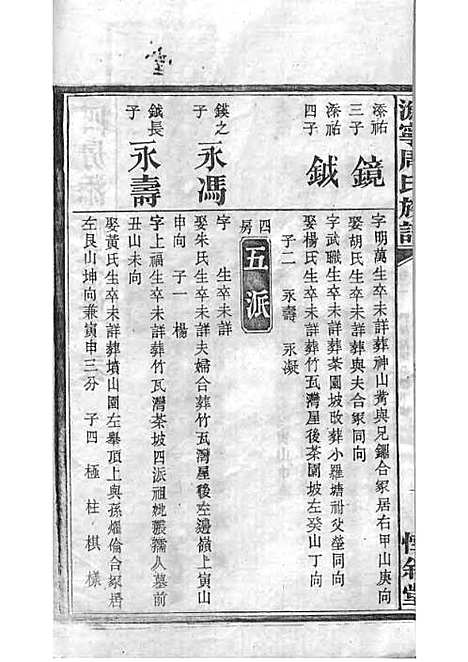 溈寧周氏族譜
惇敘堂
添祐三子
鏡
字明萬生卒未詳葬神山觜與兄鑼合冢居右甲山庚向
娶胡氏生卒未詳葬與夫合冢同向
添祐四子
鉞
字武職生卒未詳葬茶園坡改葬小羅塘祔父塋同向
娶楊氏生卒未詳葬竹瓦灣屋後茶園坡左癸山丁向
子二 永壽 永凝
四房
五派
鏌之子
永馮
字 生卒未詳
娶朱氏生卒未詳夫婦合葬竹瓦灣屋後左邊嶺上寅山
申向 子一 楊
鉞長子
永壽
字上福生卒未詳葬竹瓦灣茶坡四派祖妣龔孺人墓前
丑山未向
娶黃氏生卒未詳葬墳山園左舉頂上與孫燿倫合冢居
左艮山坤向兼寅申三分 子四 極 柱 棋 樣